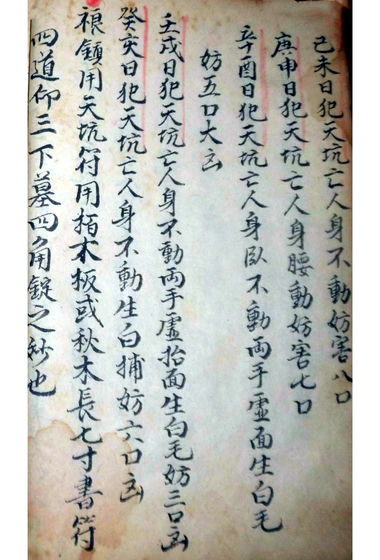 己未日犯天坑亡人身不動妨害八口
庚申日犯天坑亡人身腰動妨害七口
辛酉日犯天坑亡人身臥不動両手虚面生白毛
妨五口大凶
壬戌日犯天坑亡人身不動両手虚抬面生白毛妨三口凶
癸亥日犯天坑亡人身不動生白捕妨六口凶
禳鎮用天坑符用栢木板或秋木長七寸書符
四道仰三下墓四角錠之秒也